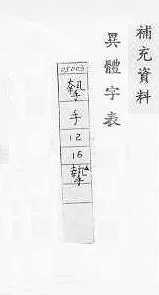 補充資料
異體字表
05003
手
12
16